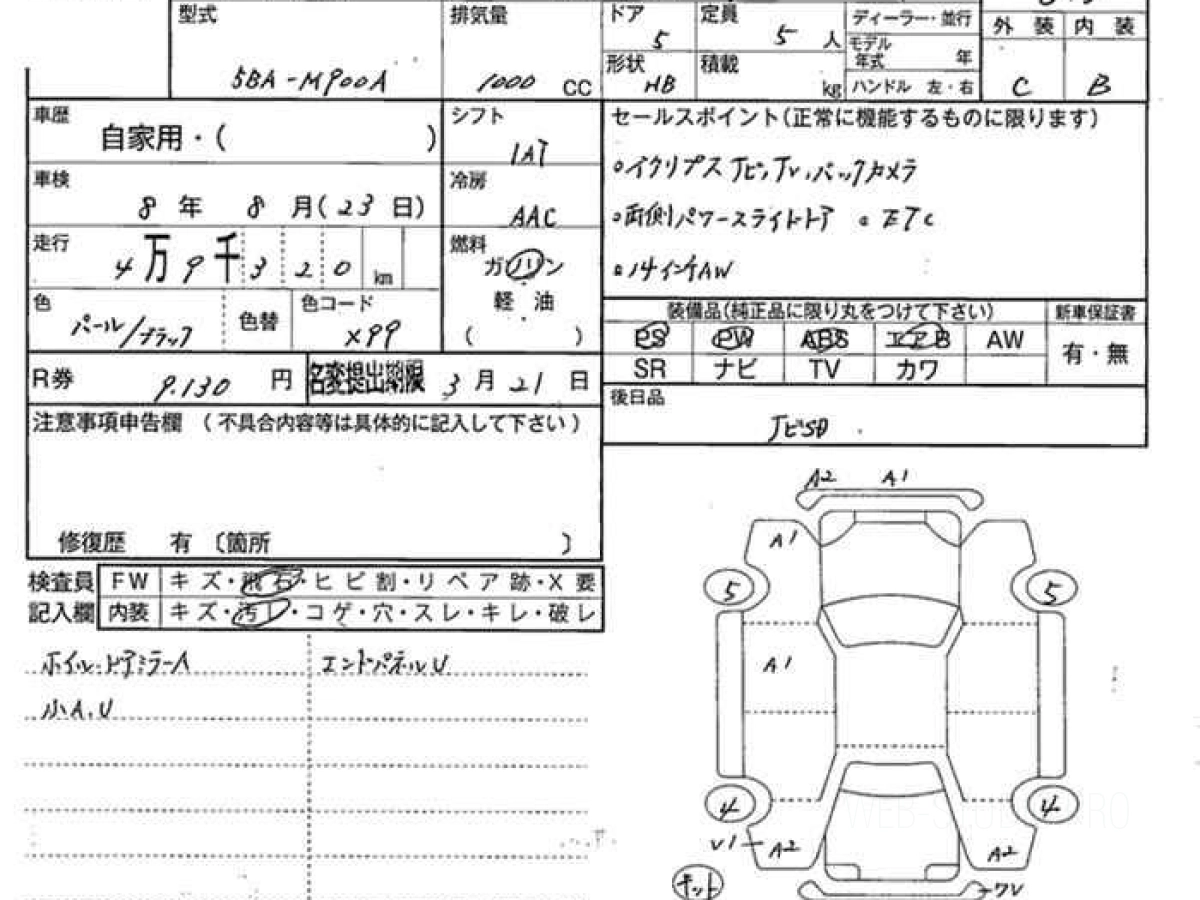 型式
5BA-M900A
排気量
1000 CC
ドア
5
定員
5 人
ディーラー・並行
モデル年式 年
ハンドル 左・右
形状
HB
積載
kg
外装 内装
C B
車歴
自家用・( )
シフト
IAT
車検
8 年 8 月(23 日)
冷房
AAC
走行
4 万 9 千 3 2 0 km
燃料
ガソリン
軽油
( )
色
パール/ブラック
色替
色コード
X99
R券 9.130 円
名変提出期限 3 月 21 日
セールスポイント(正常に機能するものに限ります)
○イクリプスナビ,TV,バックカメラ
○両側パワースライドドア ○ETC
○14インチAW
装備品(純正品に限り丸をつけて下さい)
新車保証書
PS PW ABS エアB AW
有・無
SR ナビ TV カワ
後日品
ナビSD
注意事項申告欄 (不具合内容等は具体的に記入して下さい)
修復歴 有 〔箇所 〕
検査員記入欄
FW キズ・飛石・ヒビ割・リペア跡・X要
内装 キズ・汚レ・コゲ・穴・スレ・キレ・破レ
ホイル・ドアミラーA
エンドパネルU
小A.U
A2 A1
A1
5 5
A1
4 4
U1 A2 A2
キット
ワレ
WEB-STUDIO.PRO